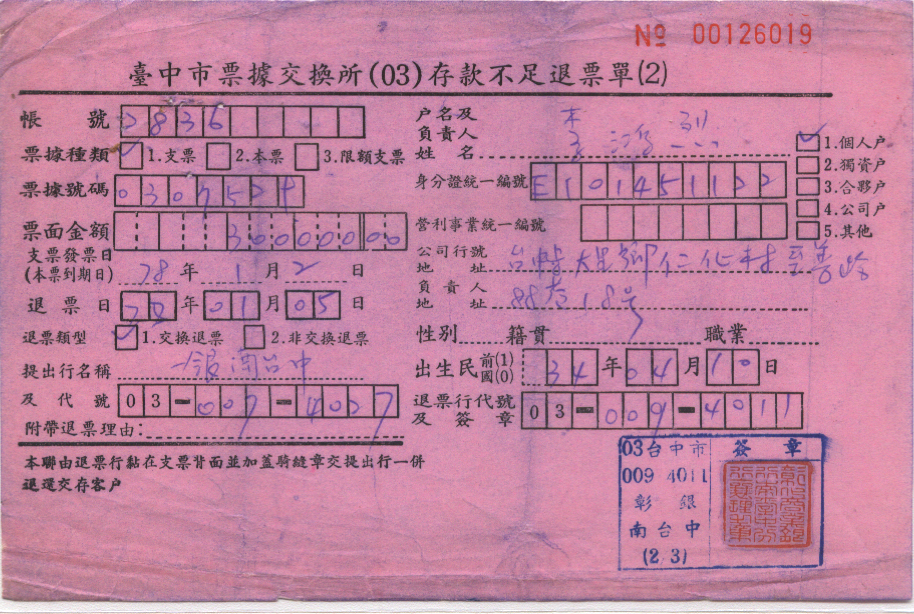 № 00126019
臺中市票據交換所(03)存款不足退票單(2)
帳號 2836
票據種類 ✓ 1.支票 2.本票 3.限額支票
票據號碼 0307524
票面金額 30000000
支票發票日
(本票到期日) 78年1月2日
退票日 78年01月05日
退票類型 ✓ 1.交換退票 2.非交換退票
提出行名稱 一銀南台中
及代號 03-007-4027
附帶退票理由:
本聯由退票行黏在支票背面並加蓋騎縫章交提出行一併
退還交存客戶
戶名及
負責人
姓名 李鴻烈
✓ 1.個人戶
2.獨資戶
3.合夥戶
4.公司戶
5.其他
身分證統一編號 E101451122
營利事業統一編號
公司行號
地址 台中縣大里鄉仁化村至善路
負責人
地址 88巷18号
性別 籍貫 職業
出生民國 前(1) (0) 34年04月10日
退票行代號
及簽章 03-009-4011
03台中市
009 4011
彰銀
南台中
(2 3)
簽章